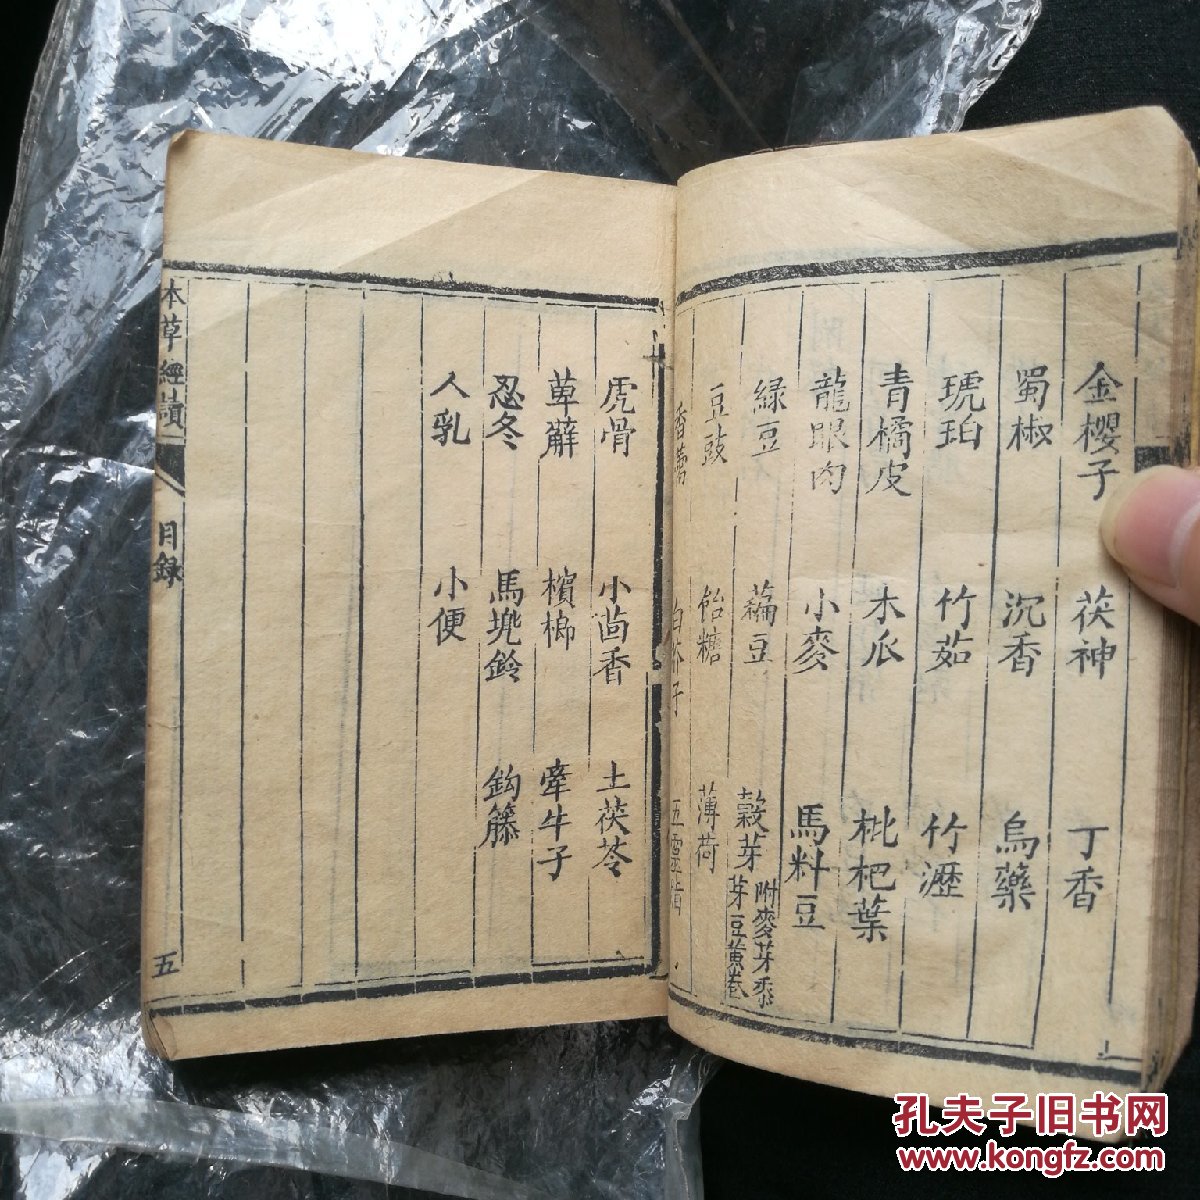 金櫻子 茯神 丁香
蜀椒 沉香 烏藥
琥珀 竹茹 竹瀝
青橘皮 木瓜 枇杷葉
龍眼肉 小麥 馬料豆
綠豆 藊豆 穀芽 附麥芽黍芽豆黄卷
豆豉 飴糖 薄荷
香薷 白芥子 五靈脂
虎骨 小茴香 土茯苓
萆薢 檳榔 牽牛子
忍冬 馬兠鈴 鈎籐
人乳 小便
本草經讀 目録 五
孔夫子旧书网
www.kongfz.com